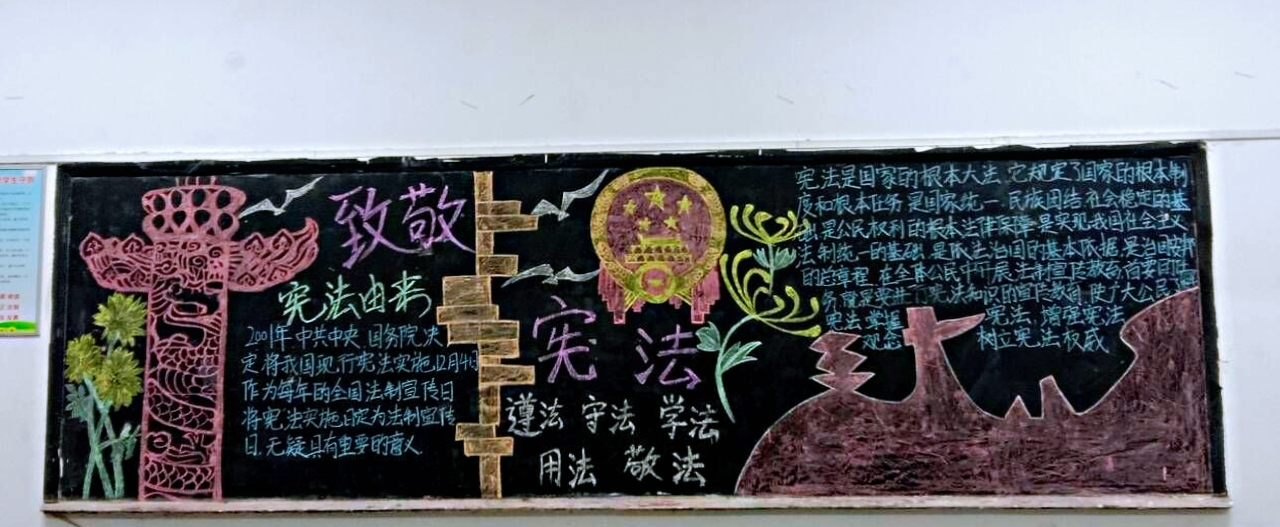 学生守则
致敬
宪法由来
2001年中共中央、国务院决
定将我国现行宪法实施12月4日
作为每年的全国法制宣传日
将宪法实施日定为法制宣传
日,无疑具有重要的意义.
宪法
遵法 守法 学法
用法 敬法
宪法是国家的根本大法 它规定了国家的根本制
度和根本任务 是国家统一 民族团结 社会稳定的基
础 是公民权利的根本法律保障 是实现我国社会主义
法制统一的基础 是依法治国的基本依据 是治国安邦
的总章程 在全体公民中开展法制宣传教育首要的任
务就是进行宪法知识的宣传教育 使广大公民
宪法 宪法, 增强宪法
观念 树立宪法权威.